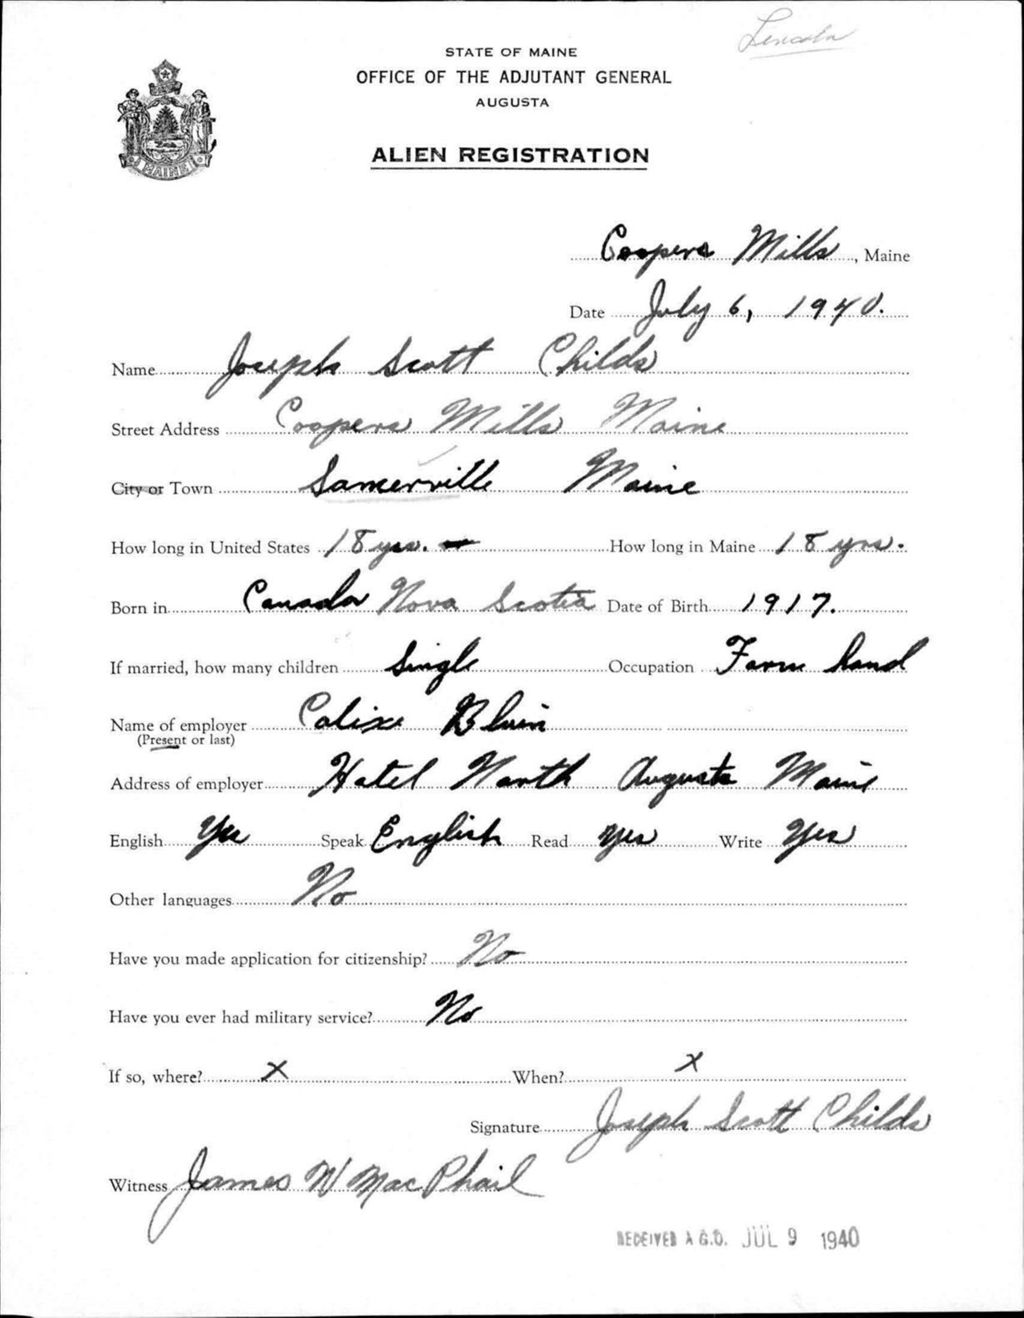 Lincoln
STATE OF MAINE
OFFICE OF THE ADJUTANT GENERAL
AUGUSTA
ALIEN REGISTRATION
MAINE
Coopers Mills, Maine
Date July 6, 1940.
Name Joseph Scott Childs
Street Address Coopers Mills Maine
City or Town Somerville Maine
How long in United States 18 yrs. How long in Maine 18 yrs.
Born in Canada Nova Scotia Date of Birth 1917.
If married, how many children Single Occupation Farm hand
Name of employer Calixe Bluin
(Present or last)
Address of employer Hotel North Augusta Maine
English Yes Speak English Read Yes Write Yes
Other languages No
Have you made application for citizenship? No
Have you ever had military service? No
If so, where? X When? X
Signature Joseph Scott Childs
Witness James W MacPhail
RECEIVED A.G.O. JUL 9 1940